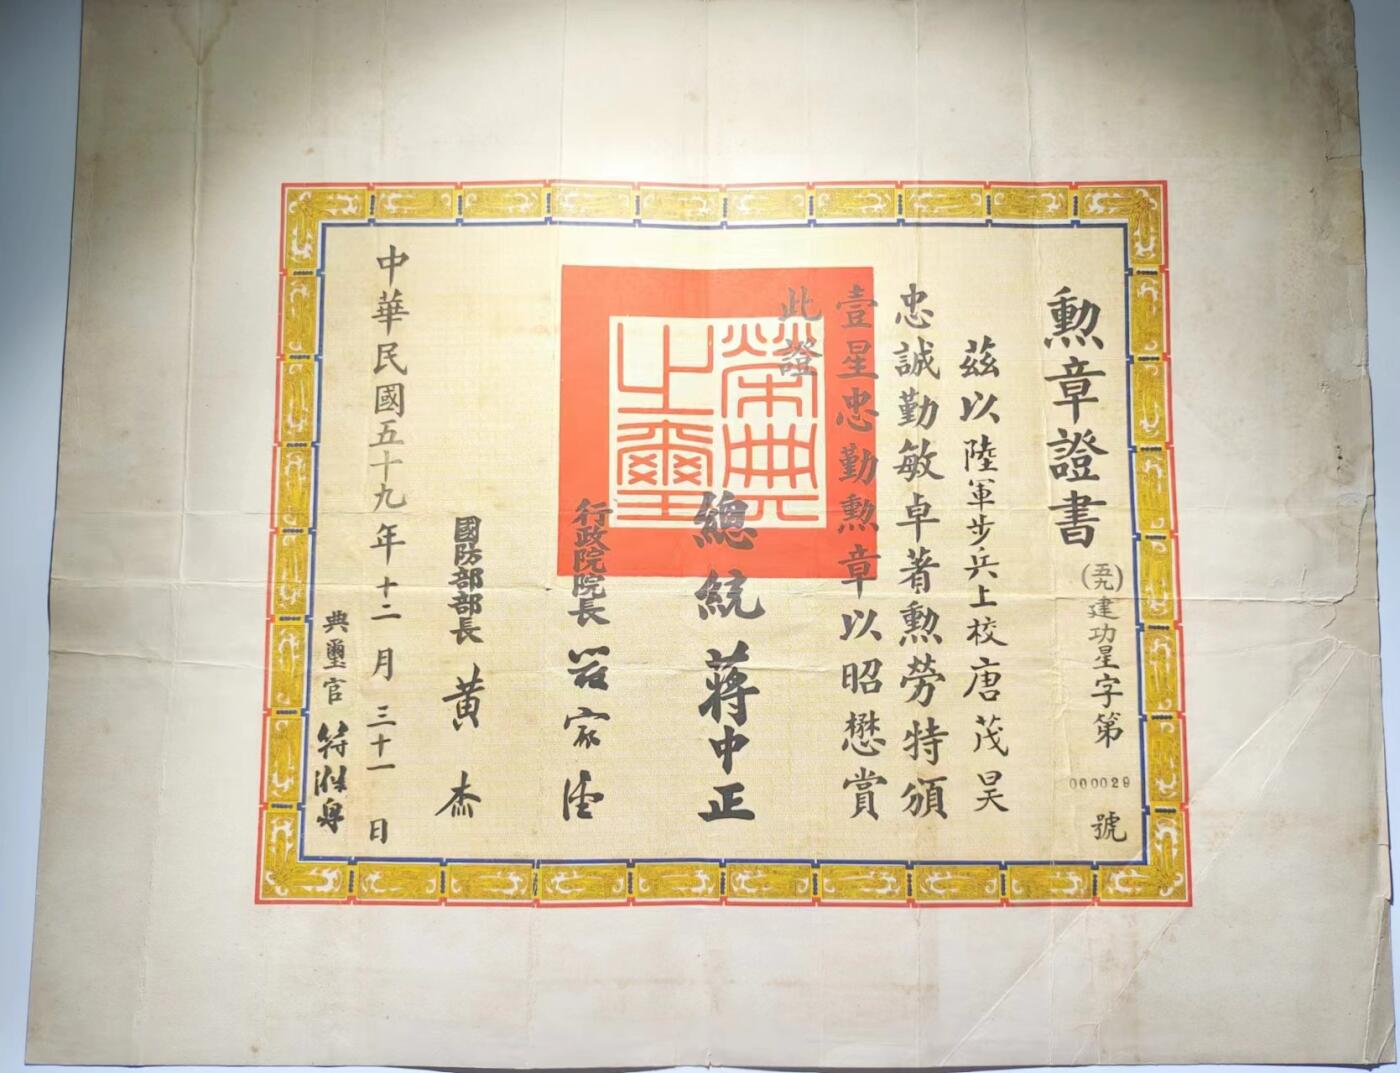 勳章證書
(五九)建功星字第000029號
茲以陸軍步兵上校唐茂昊
忠誠勤敏卓著勳勞特頒
壹星忠勤勳章以昭懋賞
此證
榮典之璽
總統 蔣中正
行政院院長 嚴家淦
國防部部長 黃杰
中華民國五十九年十二月三十一日
典璽官